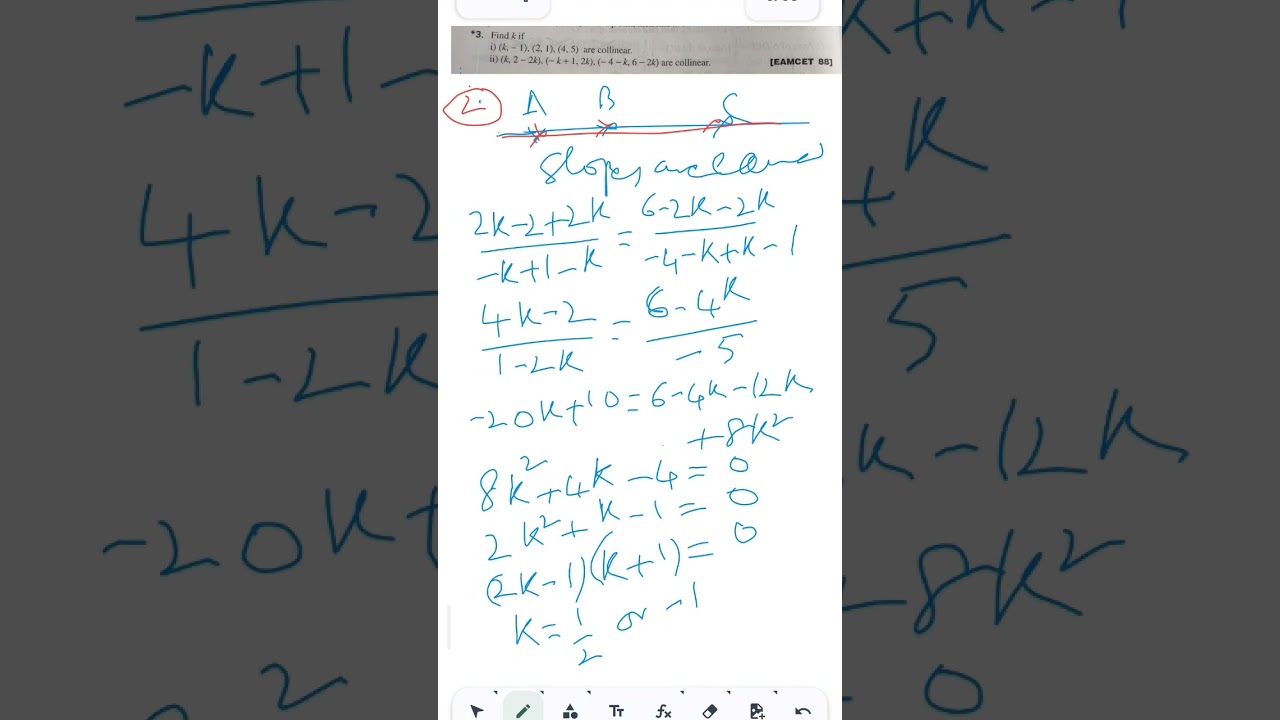 *3. Find k if
i) (k, – 1), (2, 1), (4, 5) are collinear.
ii) (k, 2 – 2k), (– k + 1, 2k), (– 4 – k, 6 – 2k) are collinear. [EAMCET 88]
2. A B C
Slopes are equal
2k-2+2k / -k+1-k = 6-2k-2k / -4-k+k-1
4k-2 / 1-2k = 6-4k / -5
-20k+10 = 6-4k-12k
+8k²
8k²+4k-4=0
2k²+k-1=0
(2k-1)(k+1)=0
k=1/2 or -1